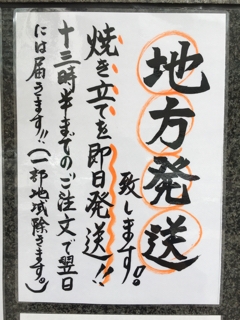 地方発送
致します。
焼き立てを即日発送!!
十三時半までのご注文で翌日
には届きます!!(一部地域除きます。)